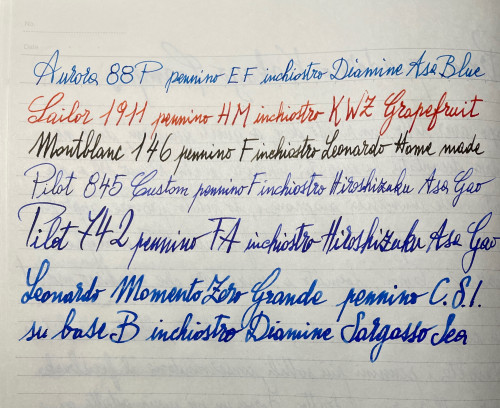 Aurora 88P pennino EF inchiostro Diamine Asa Blue
Sailor 1911 pennino HM inchiostro KWZ Grapefruit
Montblanc 146 pennino F inchiostro Leonardo Home made
Pilot 845 Custom pennino F inchiostro Hiroshizuku Asa Gao
Pilot 742 pennino FA inchiostro Hiroshizuku Asa Gao
Leonardo Momento Zero Grande pennino C.S.I.
su base B inchiostro Diamine Sargasso Sea